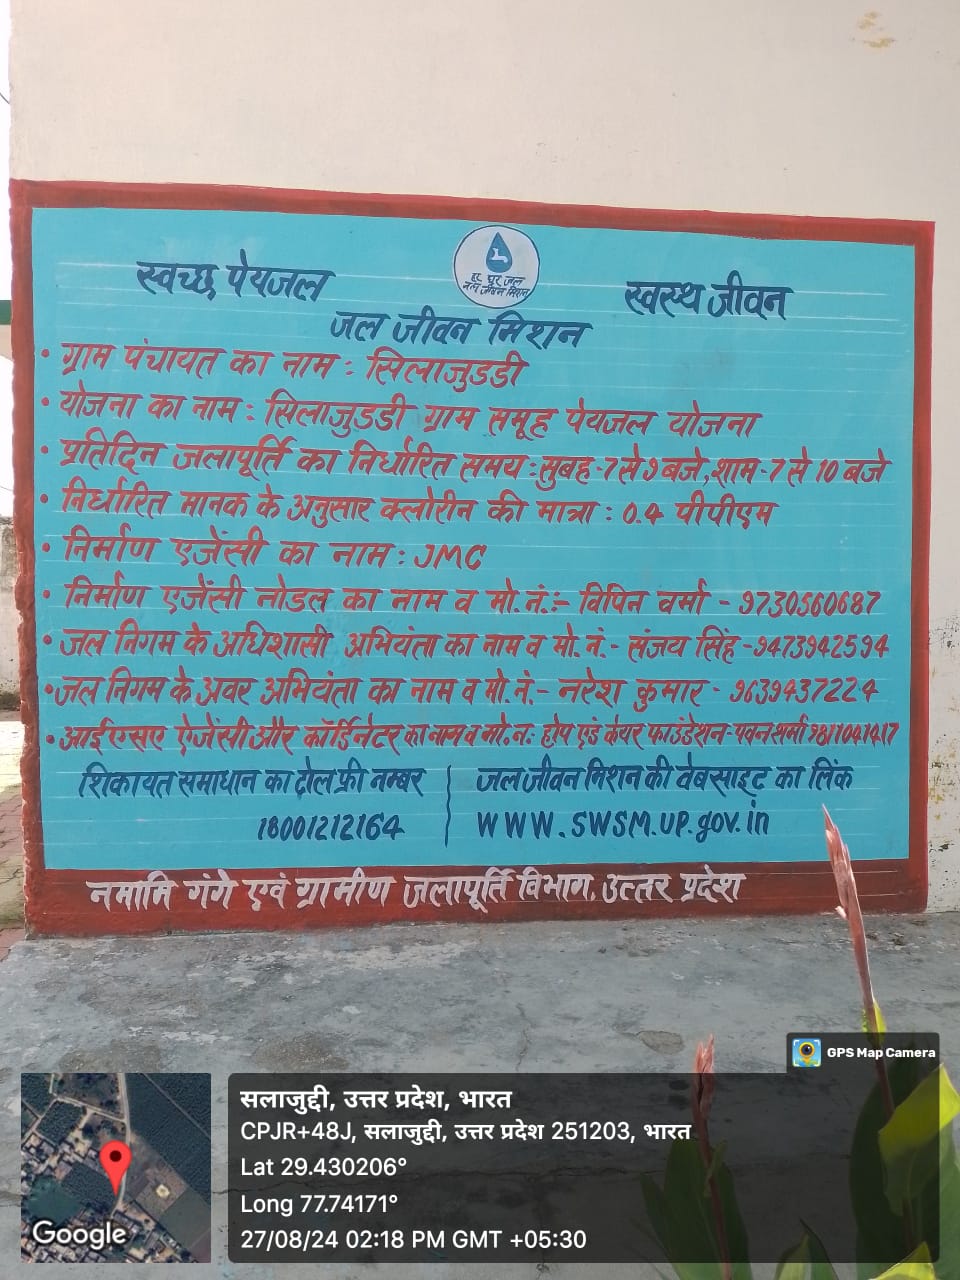 स्वच्छ पेयजल
हर घर जल
जल जीवन मिशन
स्वस्थ जीवन
जल जीवन मिशन
• ग्राम पंचायत का नाम : सिलाजुडडी
• योजना का नाम : सिलाजुडडी ग्राम समूह पेयजल योजना
• प्रतिदिन जलापूर्ति का निर्धारित समय : सुबह-7 से 9 बजे, शाम-7 से 10 बजे
• निर्धारित मानक के अनुसार क्लोरीन की मात्रा : 0.4 पीपीएम
• निर्माण एजेंसी का नाम : JMC
• निर्माण एजेंसी नोडल का नाम व मो. नं.:- विपिन वर्मा - 9730560687
• जल निगम के अधिशासी अभियंता का नाम व मो. नं.- संजय सिंह-9473942594
• जल निगम के अवर अभियंता का नाम व मो. नं.- नरेश कुमार - 9639437224
• आईएसए ऐजेंसी और कॉर्डिनेटर का नाम व मो. न: होप एंड केयर फाउंडेशन-पवन शर्मा 9811041417
शिकायत समाधान का टोल फ्री नम्बर
18001212164
जल जीवन मिशन की वेबसाइट का लिंक
WWW.SWSM.UP.gov.in
नमामि गंगे एवं ग्रामीण जलापूर्ति विभाग, उत्तर प्रदेश
GPS Map Camera
सलाजुद्दी, उत्तर प्रदेश, भारत
CPJR+48J, सलाजुद्दी, उत्तर प्रदेश 251203, भारत
Lat 29.430206°
Long 77.74171°
27/08/24 02:18 PM GMT +05:30
Google